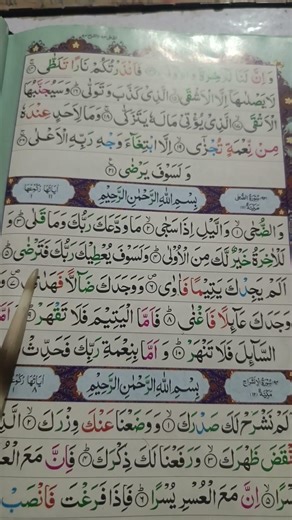 وَاِنَّ لَنَا لَلْاٰخِرَةَ وَالْاُوْلٰى ۝ فَاَنْذَرْتُكُمْ نَارًا تَلَظّٰى ۝
لَا يَصْلٰىهَآ اِلَّا الْاَشْقَى ۝ الَّذِيْ كَذَّبَ وَتَوَلّٰى ۝ وَسَيُجَنَّبُهَا
الْاَتْقَى ۝ الَّذِيْ يُؤْتِيْ مَالَهٗ يَتَزَكّٰى ۝ وَمَا لِاَحَدٍ عِنْدَهٗ
مِنْ نِّعْمَةٍ تُجْزٰٓى ۝ اِلَّا ابْتِغَآءَ وَجْهِ رَبِّهِ الْاَعْلٰى ۝
وَلَسَوْفَ يَرْضٰى ۝
بِسْمِ اللّٰهِ الرَّحْمٰنِ الرَّحِيْمِ
وَالضُّحٰى ۝ وَالَّيْلِ اِذَا سَجٰى ۝ مَا وَدَّعَكَ رَبُّكَ وَمَا قَلٰى ۝ وَ
لَلْاٰخِرَةُ خَيْرٌ لَّكَ مِنَ الْاُوْلٰى ۝ وَلَسَوْفَ يُعْطِيْكَ رَبُّكَ فَتَرْضٰى ۝
اَلَمْ يَجِدْكَ يَتِيْمًا فَاٰوٰى ۝ وَوَجَدَكَ ضَآلًّا فَهَدٰى ۝
وَجَدَكَ عَآئِلًا فَاَغْنٰى ۝ فَاَمَّا الْيَتِيْمَ فَلَا تَقْهَرْ ۝ وَاَمَّا
السَّآئِلَ فَلَا تَنْهَرْ ۝ وَاَمَّا بِنِعْمَةِ رَبِّكَ فَحَدِّثْ ۝
بِسْمِ اللّٰهِ الرَّحْمٰنِ الرَّحِيْمِ
اَلَمْ نَشْرَحْ لَكَ صَدْرَكَ ۝ وَوَضَعْنَا عَنْكَ وِزْرَكَ ۝ الَّذِ
نْقَضَ ظَهْرَكَ ۝ وَرَفَعْنَا لَكَ ذِكْرَكَ ۝ فَاِنَّ مَعَ الْعُ
سْرًا ۝ اِنَّ مَعَ الْعُسْرِ يُسْرًا ۝ فَاِذَا فَرَغْتَ فَانْصَبْ